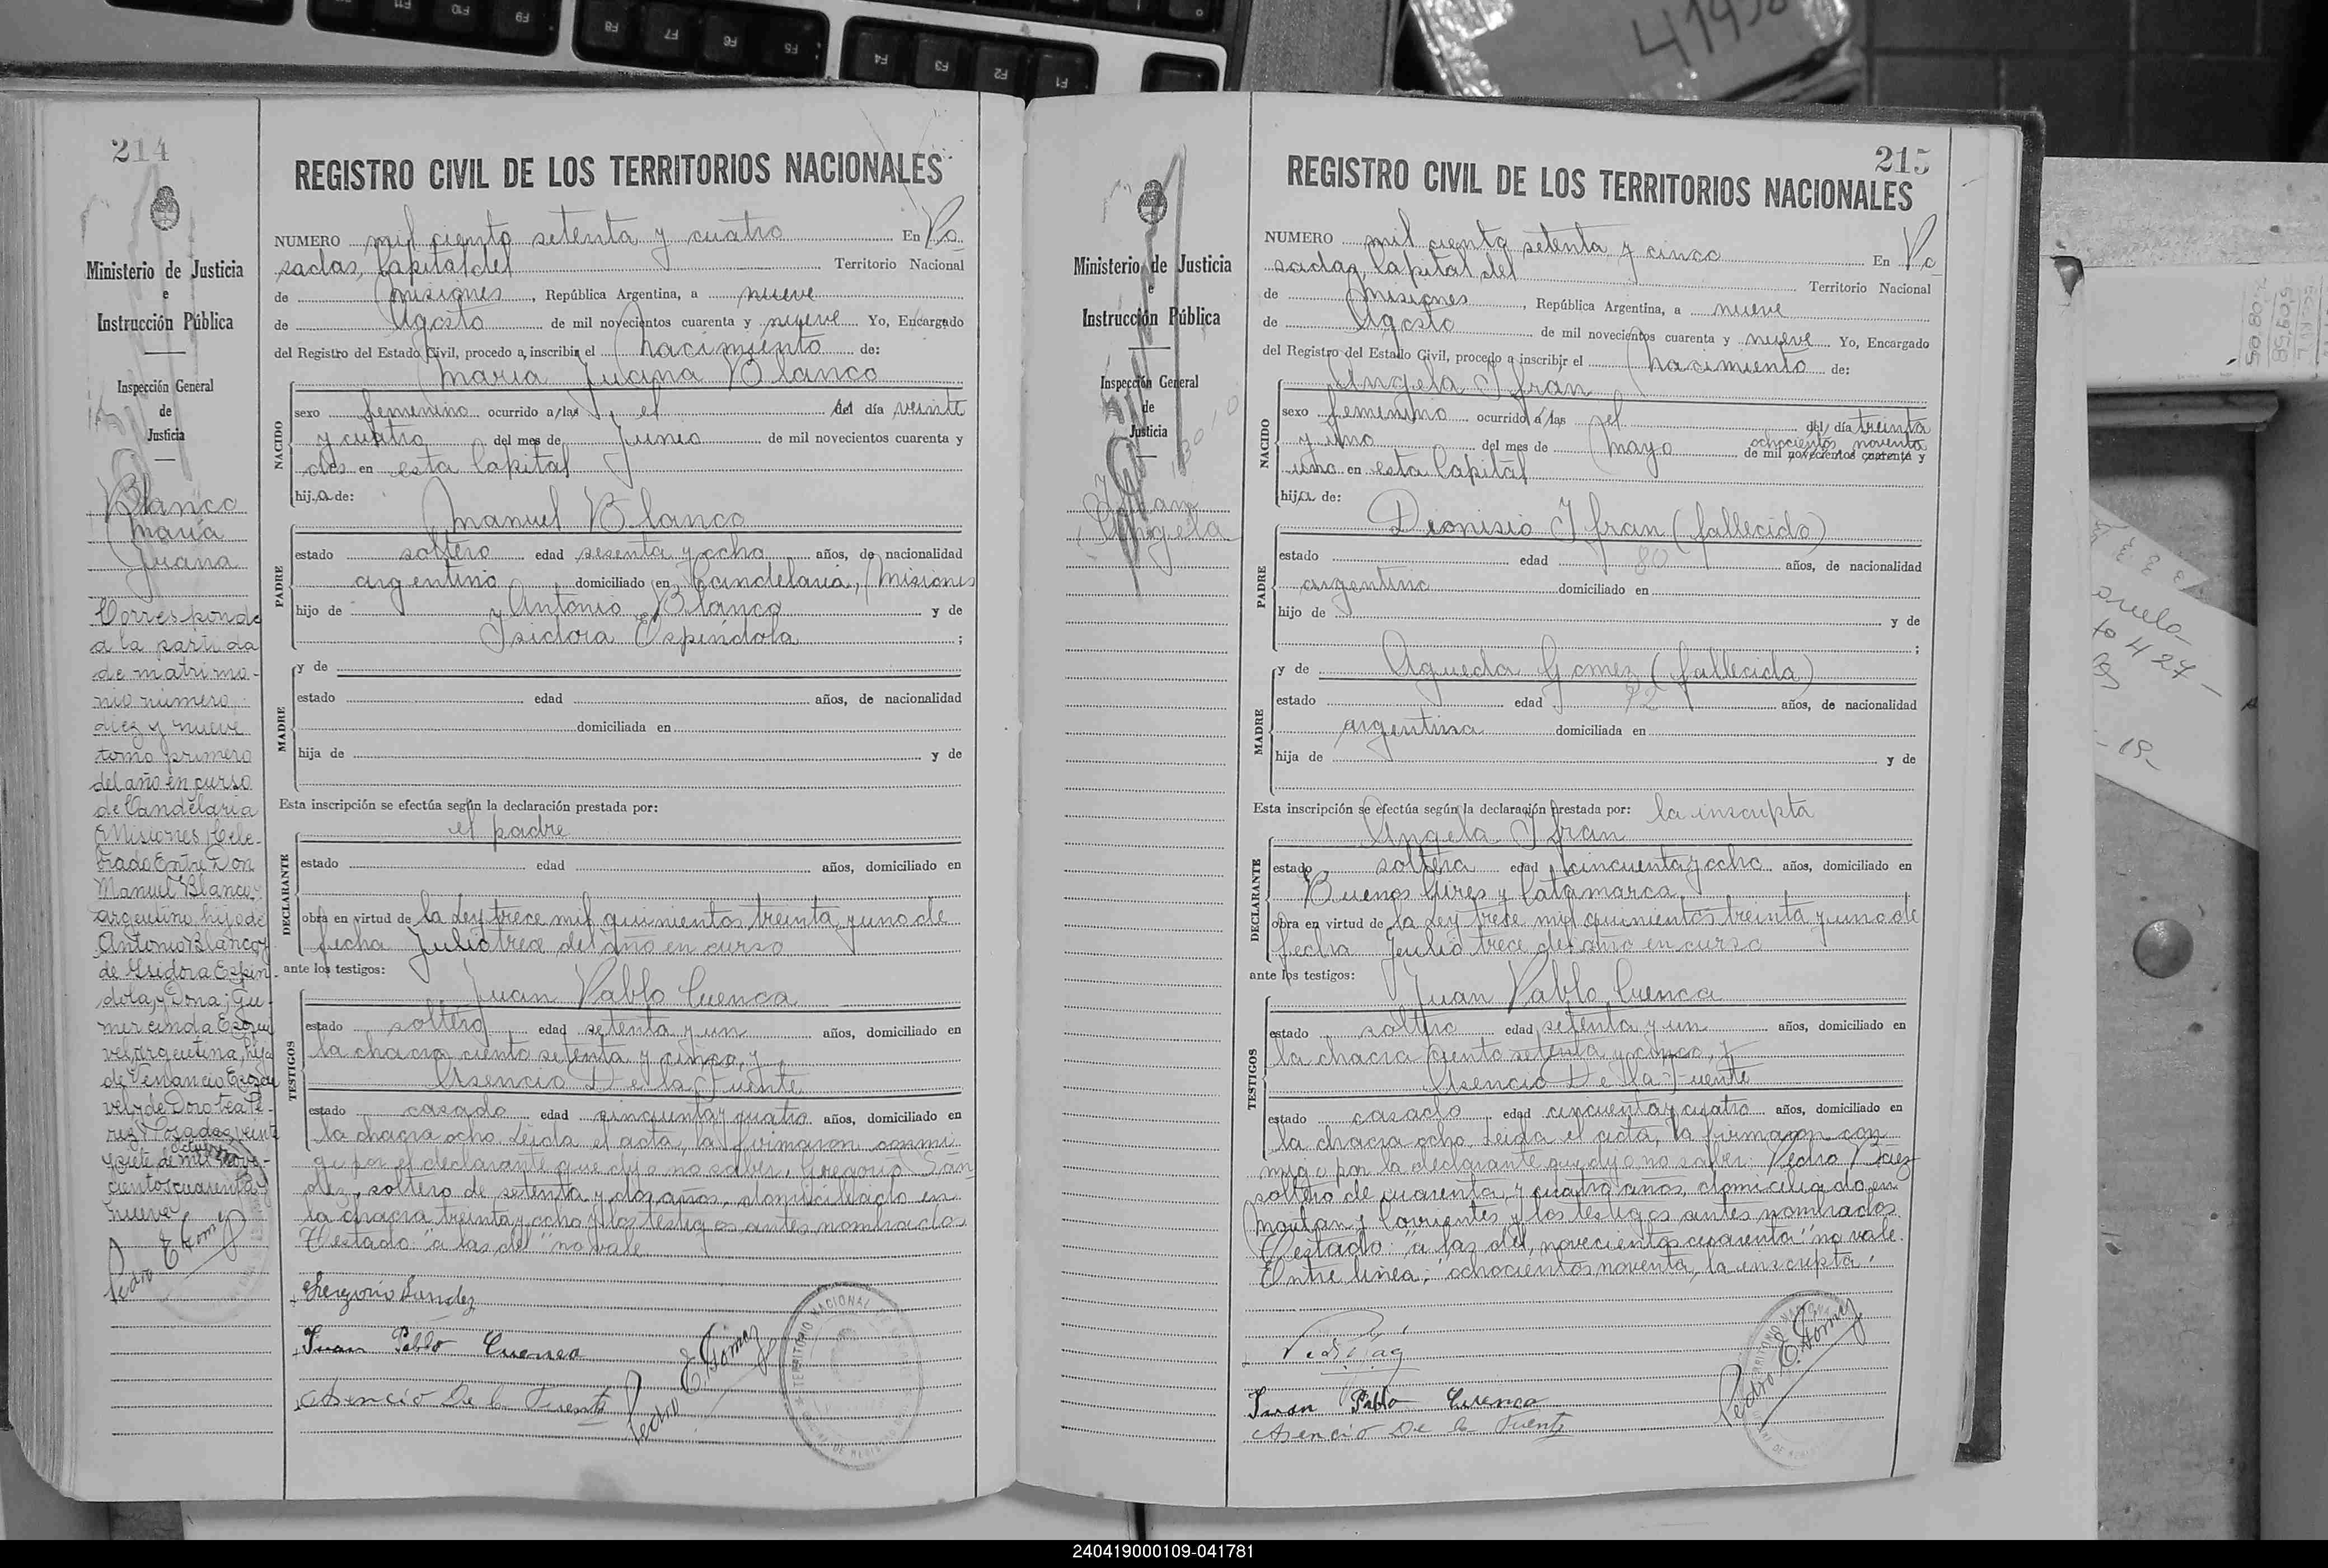 F1
F2
F3
F4
F5
F6
F7
F8
F9
F10
F11
214
REGISTRO CIVIL DE LOS TERRITORIOS NACIONALES
Ministerio de Justicia
e
Instrucción Pública
Inspección General
de
Justicia
Blanco
Maria
Juana
Corresponde
a la partida
de matrimo-
nio número
diez y nueve
tomo primero
del año en curso
de Candelaria
Misiones, Cele-
brado Entre Don
Manuel Blanco,
argentino, hijo de
Antonio Blanco y
de Isidora Espín-
dola, y Doña; Gu-
mercinda
vel, argentina, hija
de Venancio
vel y de Dorotea Pe-
rez Posadas, veinte
octubre
y siete de mil nove-
cientos cuarenta y
nueve
Pedro E Gomez
NUMERO mil ciento setenta y cuatro En Po-
sadas, Capital del Territorio Nacional
de Misiones, República Argentina, a nueve
de Agosto de mil novecientos cuarenta y nueve Yo, Encargado
del Registro del Estado Civil, procedo a inscribir el nacimiento de:
Maria Juana Blanco
NACIDO
sexo femenino ocurrido a/las el del día veinte
y cuatro del mes de Junio de mil novecientos cuarenta y
dos en esta Capital
hija de:
Manuel Blanco
PADRE
estado soltero edad sesenta y ocho años, de nacionalidad
argentino domiciliado en Candelaria, Misiones
hijo de Antonio Blanco y de
Isidora Espíndola ;
y de
MADRE
estado edad años, de nacionalidad
domiciliada en
hija de y de
Esta inscripción se efectúa según la declaración prestada por:
el padre
DECLARANTE
estado edad años, domiciliado en
obra en virtud de la Ley trece mil quinientos treinta y uno de
fecha Julio trece del año en curso
ante los testigos:
Juan Pablo Cuenca
TESTIGOS
estado soltero edad setenta y un años, domiciliado en
la chacra ciento setenta y cinco, y
Asencio De la Fuente
estado casado edad cincuenta y cuatro años, domiciliado en
la chacra ocho. Leída el acta, la firmaron conmi-
go por el declarante que dijo no saber, Gregorio Sán
dez, soltero de setenta y dos años, domiciliado en
la chacra treinta y ocho y los testigos antes nombrados
Testado: "a las del" no vale
Gregorio Sandez
Juan Pablo Cuenca
Asencio De la Fuente
Pedro E. Gomez
TERRITORIO NACIONAL
215
REGISTRO CIVIL DE LOS TERRITORIOS NACIONALES
Ministerio de Justicia
e
Instrucción Pública
Inspección General
de
Justicia
Ifran
Angela
NUMERO mil ciento setenta y cinco En Po-
sadas, Capital del Territorio Nacional
de Misiones, República Argentina, a nueve
de Agosto de mil novecientos cuarenta y nueve Yo, Encargado
del Registro del Estado Civil, procedo a inscribir el nacimiento de:
Angela Ifran
NACIDO
sexo femenino ocurrido a/las el del día treinta
ochocientos noventa
y uno del mes de Mayo de mil novecientos cuarenta y
uno en esta Capital
hija de:
Dionisio Ifran (fallecido)
PADRE
estado edad 80 años, de nacionalidad
argentino domiciliado en
hijo de y de
;
y de Agueda Gomez (fallecida)
MADRE
estado edad años, de nacionalidad
argentina domiciliada en
hija de y de
Esta inscripción se efectúa según la declaración prestada por: la inscripta
Angela Ifran
DECLARANTE
estado soltera edad cincuenta y ocho años, domiciliado en
Buenos Aires y Catamarca
obra en virtud de la Ley trece mil quinientos treinta y uno de
fecha Julio trece del año en curso
ante los testigos:
Juan Pablo Cuenca
TESTIGOS
estado soltero edad setenta y un años, domiciliado en
la chacra ciento setenta y cinco, y
Asencio De la Fuente
estado casado edad cincuenta y cuatro años, domiciliado en
la chacra ocho. Leida el acta, la firmaron con-
migo por la declarante que dijo no saber: Pedro Baez
soltero de cuarenta y cuatro años, domiciliado en
y Corrientes y los testigos antes nombrados
Testado: "a las del, novecientos cuarenta" no vale.
Entre linea; "ochocientos noventa, la inscripta".
Juan Pablo Cuenca
Asencio De la Fuente
Pedro E. Gomez
240419000109-041781